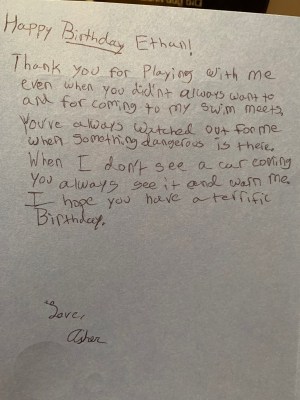 Happy Birthday Ethan!
Thank you for Playing with me
even when you didn't always want to
and for coming to my swim meets.
You've always watched out for me
when something dangerous is there.
When I don't see a car coming
you always see it and warn me.
I hope you have a terrific
Birthday.
Love,
Asher